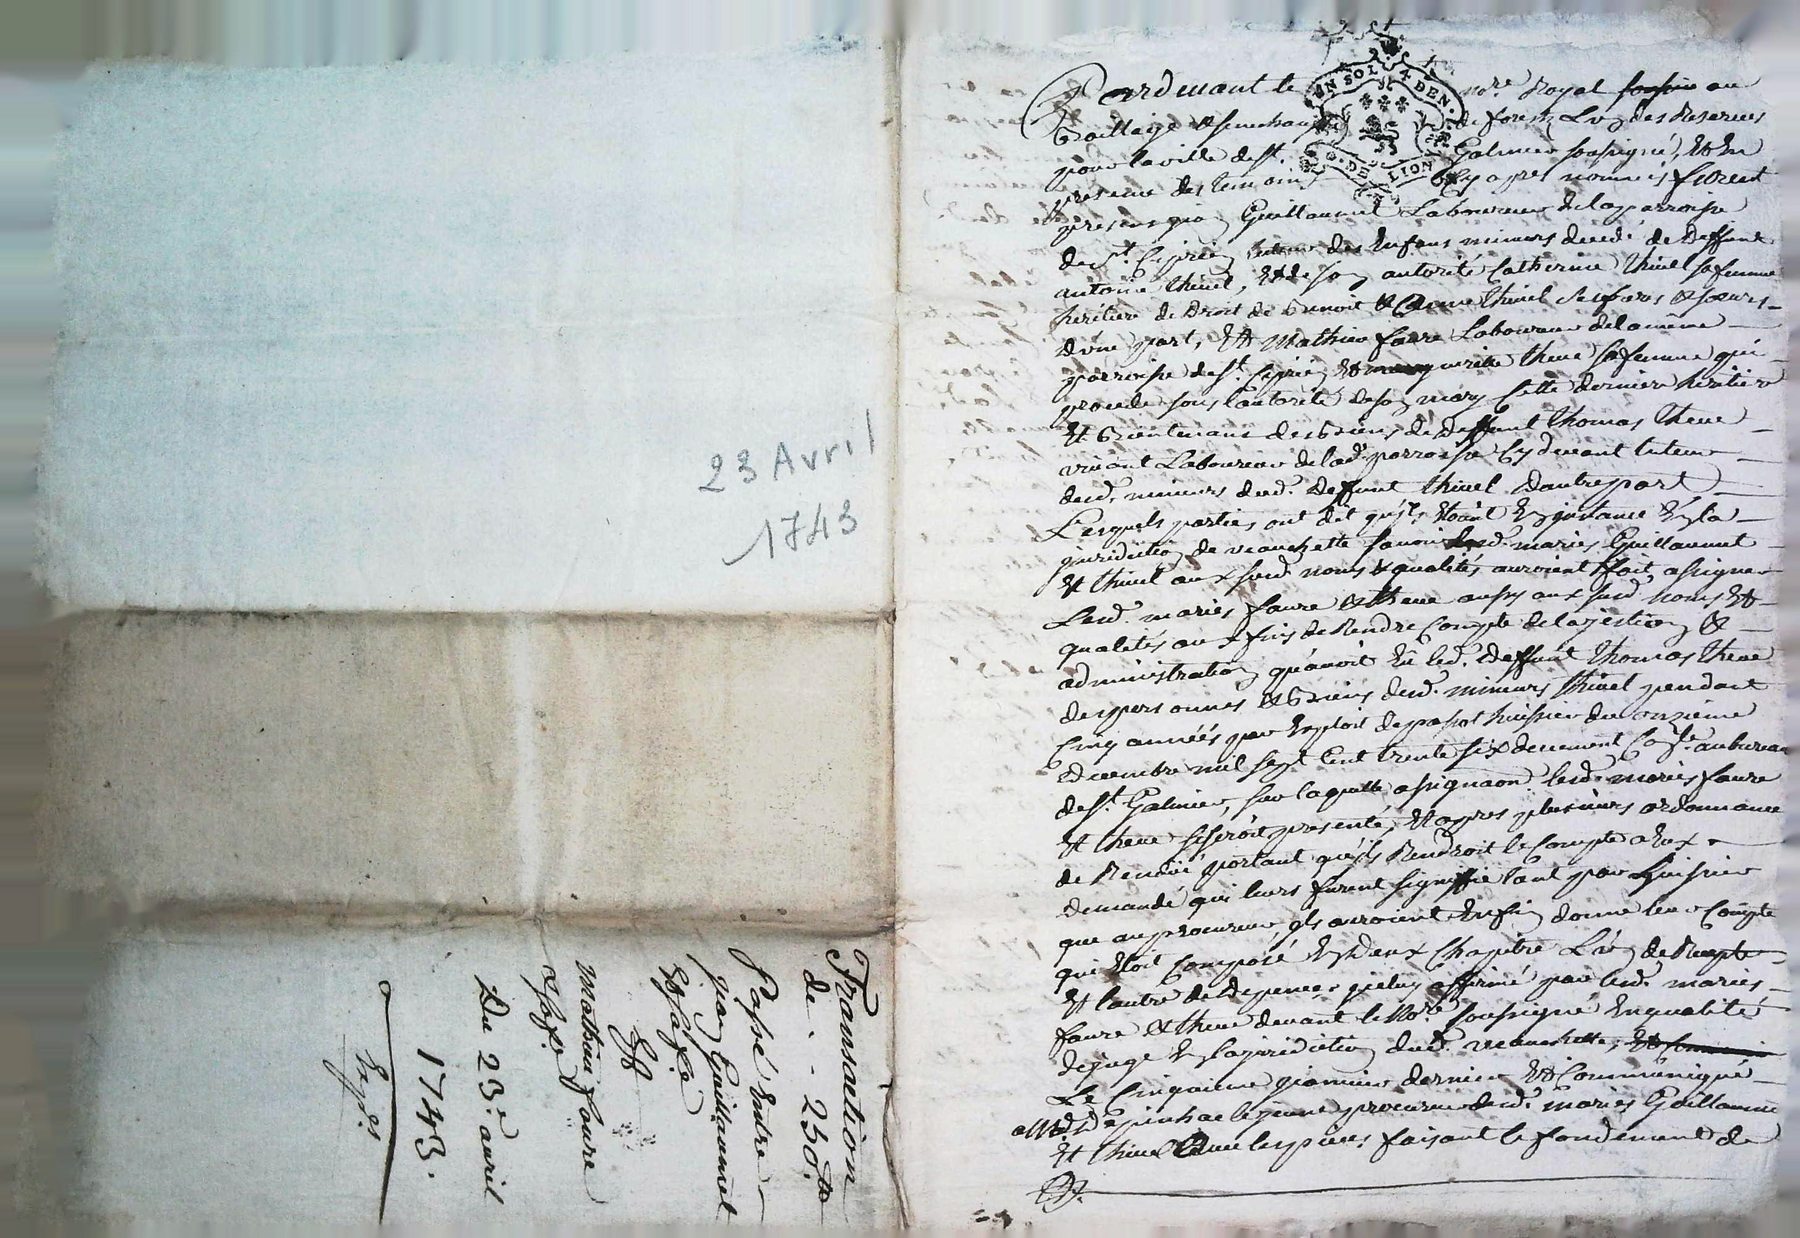 23 Avril
1743
Transaction
de - - 230 ₶
Passé Entre
jean Guillaumet
Et sa fe
Et
Mathieu faure
& sa fe
Du 23e avril
1743.
Exp.s
UN SOL 4 DEN.
G. DE LION
Pardevant le nore Royal au
Bailliage & senechaussé de forest, L'un des Reservés
pour la ville de st. Galmier soussigné, Et En
presence des temoins Cy apres nommés furent
presens jean Guillaumet Laboureur de la parroisse
de st. Ciprien tuteur des Enfans mineurs de Deffunt
antoine thivel, Et de son autorité Catherine thivel sa femme
heritiere de Droit de Benoit & thivel ses freres & soeurs
d'une part, Et Mathieu faure Laboureur de la même
parroisse de st. Ciprien Et marguerite theve sa femme qui
procede sous l'autorité de son mary Cette derniere heritiere
Et Bientenant des Biens de Deffunt thomas theve
vivant Laboureur de lad. parroisse Cydevant tuteur
desd. mineurs dud. Deffunt thivel D'autre part
Lesquels parties ont dit qu'ils Etoient En instance En la
juridiction de veauchette savoir lesd. mariés Guillaumet
Et thivel aux susd. noms & qualités auroient fait assigner
Lesd. mariés faure & theve aussy aux susd. noms Et
qualités aux fins de Rendre Compte de la gestion &
administration qu'avoit Eü led. Deffunt thomas theve
des personnes & Biens desd. mineurs thivel pendant
Cinq années par Exploit de huissier du onzieme
Decembre mil sept Cent trente six deuement Con.le au bureau
de st. Galmier, sur laquelle assignaon. lesd. mariés faure
Et theve se seroit presenté, Et apres plusieurs ordonnance
de Rendüe portant qu'ils Rendroit le Compte a Eux
demandé qui leurs furent signiffié tant par huissier
que au procureur, ils auroient Enfin donné leur Compte
qui Etoit Composé En Deux Chapitre L'un de Recepte
Et l'autre de Depence affirmé par lesd. mariés
faure & theve devant le Nore soussigné En qualité
de juge En la juridiction dud. veauchette,
Le Cinquieme janvier dernier Et Communiqué
a Me Depinhac le jeune procureur desd. mariés Guillaumet
Et thivel avec les pieces faisant le fondement de